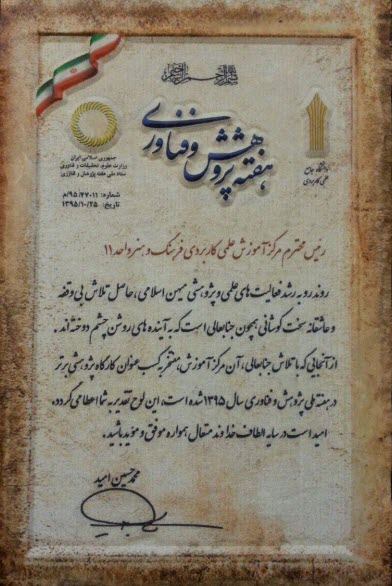 بسم الله الرحمن الرحیم
هفته پژوهش و فناوری
جمهوری اسلامی ایران
وزارت علوم، تحقیقات و فناوری
ستاد ملی هفته پژوهش و فناوری
دانشگاه جامع
علمی کاربردی
شماره: ۹۵/۴۷۰۱۱/م
تاریخ: ۱۳۹۵/۱۰/۲۵
رئیس محترم مرکز آموزش علمی کاربردی فرهنگ و هنر واحد ۱۱
روند رو به رشد فعالیت های علمی و پژوهشی میهن اسلامی، حاصل تلاش بی وقفه
و عاشقانه سخت کوشانی همچون جنابعالی است که به آینده های روشن چشم دوخته اند.
از آنجایی که با تلاش جنابعالی، آن مرکز آموزش مفتخر به کسب عنوان کارگاه پژوهشی برتر
در هفته ملی پژوهش و فناوری سال ۱۳۹۵ شده است، این لوح تقدیر به شما اعطا می گردد.
امید است در سایه الطاف خداوند متعال همواره موفق و مؤید باشید.
محمد حسین امید